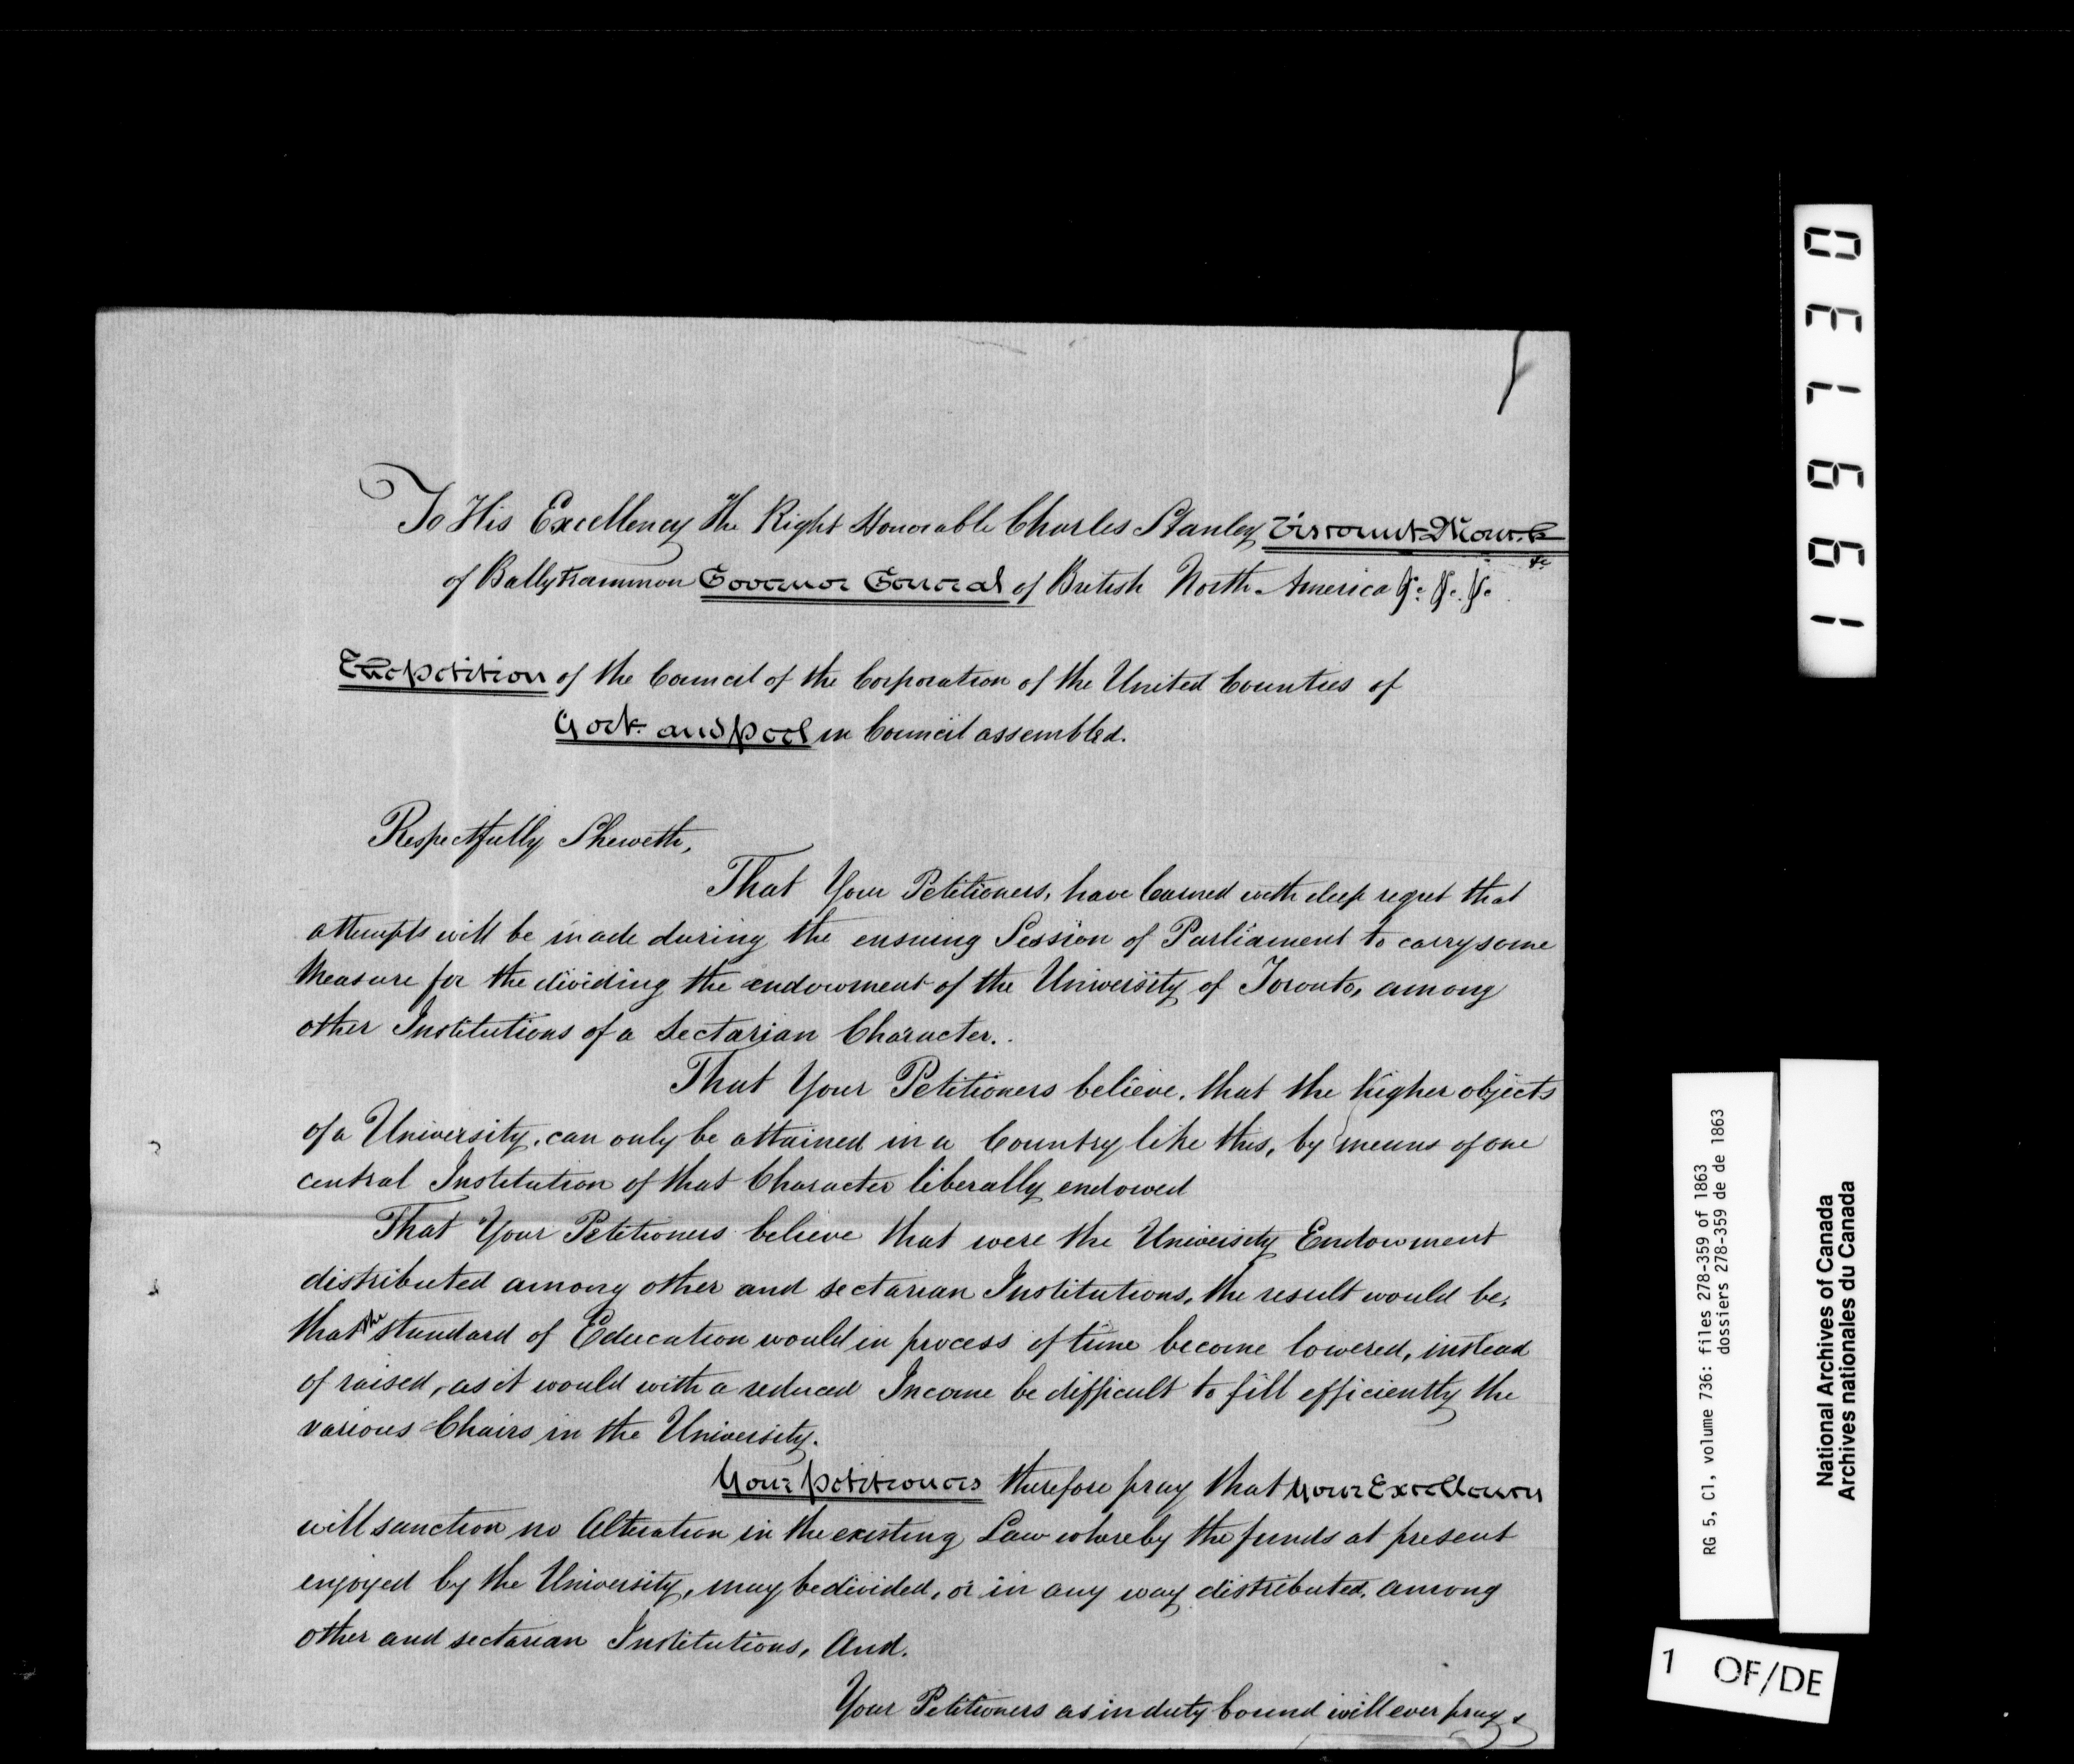 To His Excellency The Right Honorable Charles Stanley Viscount Monck
&c
of Ballytrammon Governor General of British North America &c. &c. &c.
The petition of the Council of the Corporation of the United Counties of
York and peel in Council assembled.
Respectfully Sheweth,
That Your Petitioners, have learned with deep regret that
attempts will be made during the ensuing Session of Parliament to carry some
Measure for the dividing the endowment of the University of Toronto, among
other Institutions of a Sectarian Character.
That Your Petitioners believe, that the higher objects
of a University, can only be attained in a Country like this, by means of one
central Institution of that Character liberally endowed
That Your Petitioners believe that were the University Endowment
distributed among other and sectarian Institutions, the result would be,
that the standard of Education would in process of time become lowered, instead
of raised, as it would with a reduced Income be difficult to fill efficiently the
various Chairs in the University.
Your petitioners therefore pray that your Excellency
will sanction no Alteration in the existing Law whereby the funds at present
enjoyed by the University, may be divided, or in any way distributed, among
other and sectarian Institutions, And.
Your Petitioners as in duty bound will ever pray,
199730
RG 5, C1, volume 736: files 278-359 of 1863
dossiers 278-359 de de 1863
National Archives of Canada
Archives nationales du Canada
1 OF/DE